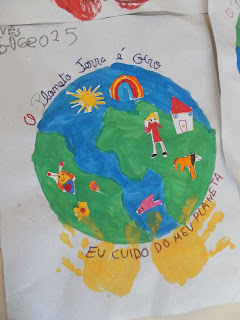 2025
O Planeto Terra é Giro
EU CUIDO DO MEU PLANETA